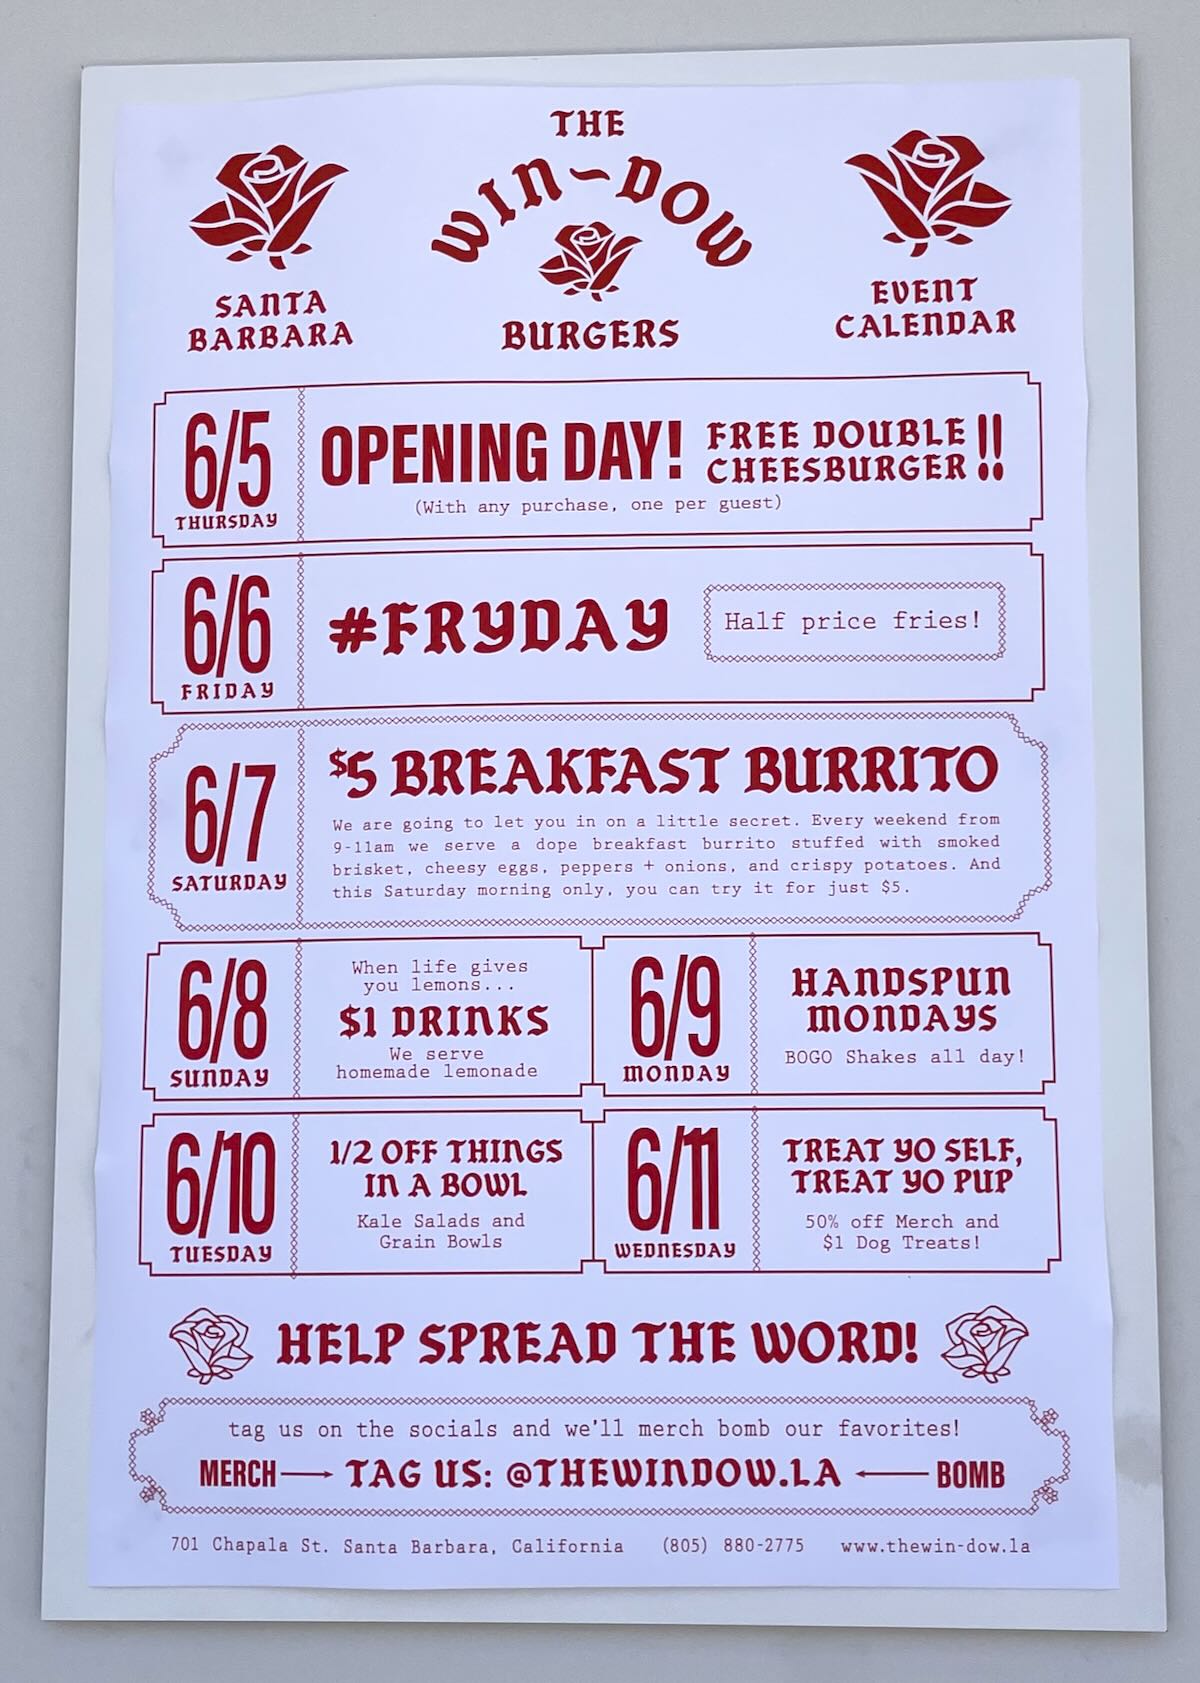 THE
WIN~DOW
BURGERS
SANTA
BARBARA
EVENT
CALENDAR
6/5
THURSDAY
OPENING DAY! FREE DOUBLE
CHEESBURGER!!
(With any purchase, one per guest)
6/6
FRIDAY
#FRYDAY
Half price fries!
6/7
SATURDAY
$5 BREAKFAST BURRITO
We are going to let you in on a little secret. Every weekend from
9-11am we serve a dope breakfast burrito stuffed with smoked
brisket, cheesy eggs, peppers + onions, and crispy potatoes. And
this Saturday morning only, you can try it for just $5.
6/8
SUNDAY
When life gives
you lemons...
$1 DRINKS
We serve
homemade lemonade
6/9
MONDAY
HANDSPUN
MONDAYS
BOGO Shakes all day!
6/10
TUESDAY
1/2 OFF THINGS
IN A BOWL
Kale Salads and
Grain Bowls
6/11
WEDNESDAY
TREAT YO SELF,
TREAT YO PUP
50% off Merch and
$1 Dog Treats!
HELP SPREAD THE WORD!
tag us on the socials and we'll merch bomb our favorites!
MERCH TAG US: @THEWINDOW.LA BOMB
701 Chapala St. Santa Barbara, California (805) 880-2775 www.thewin-dow.la